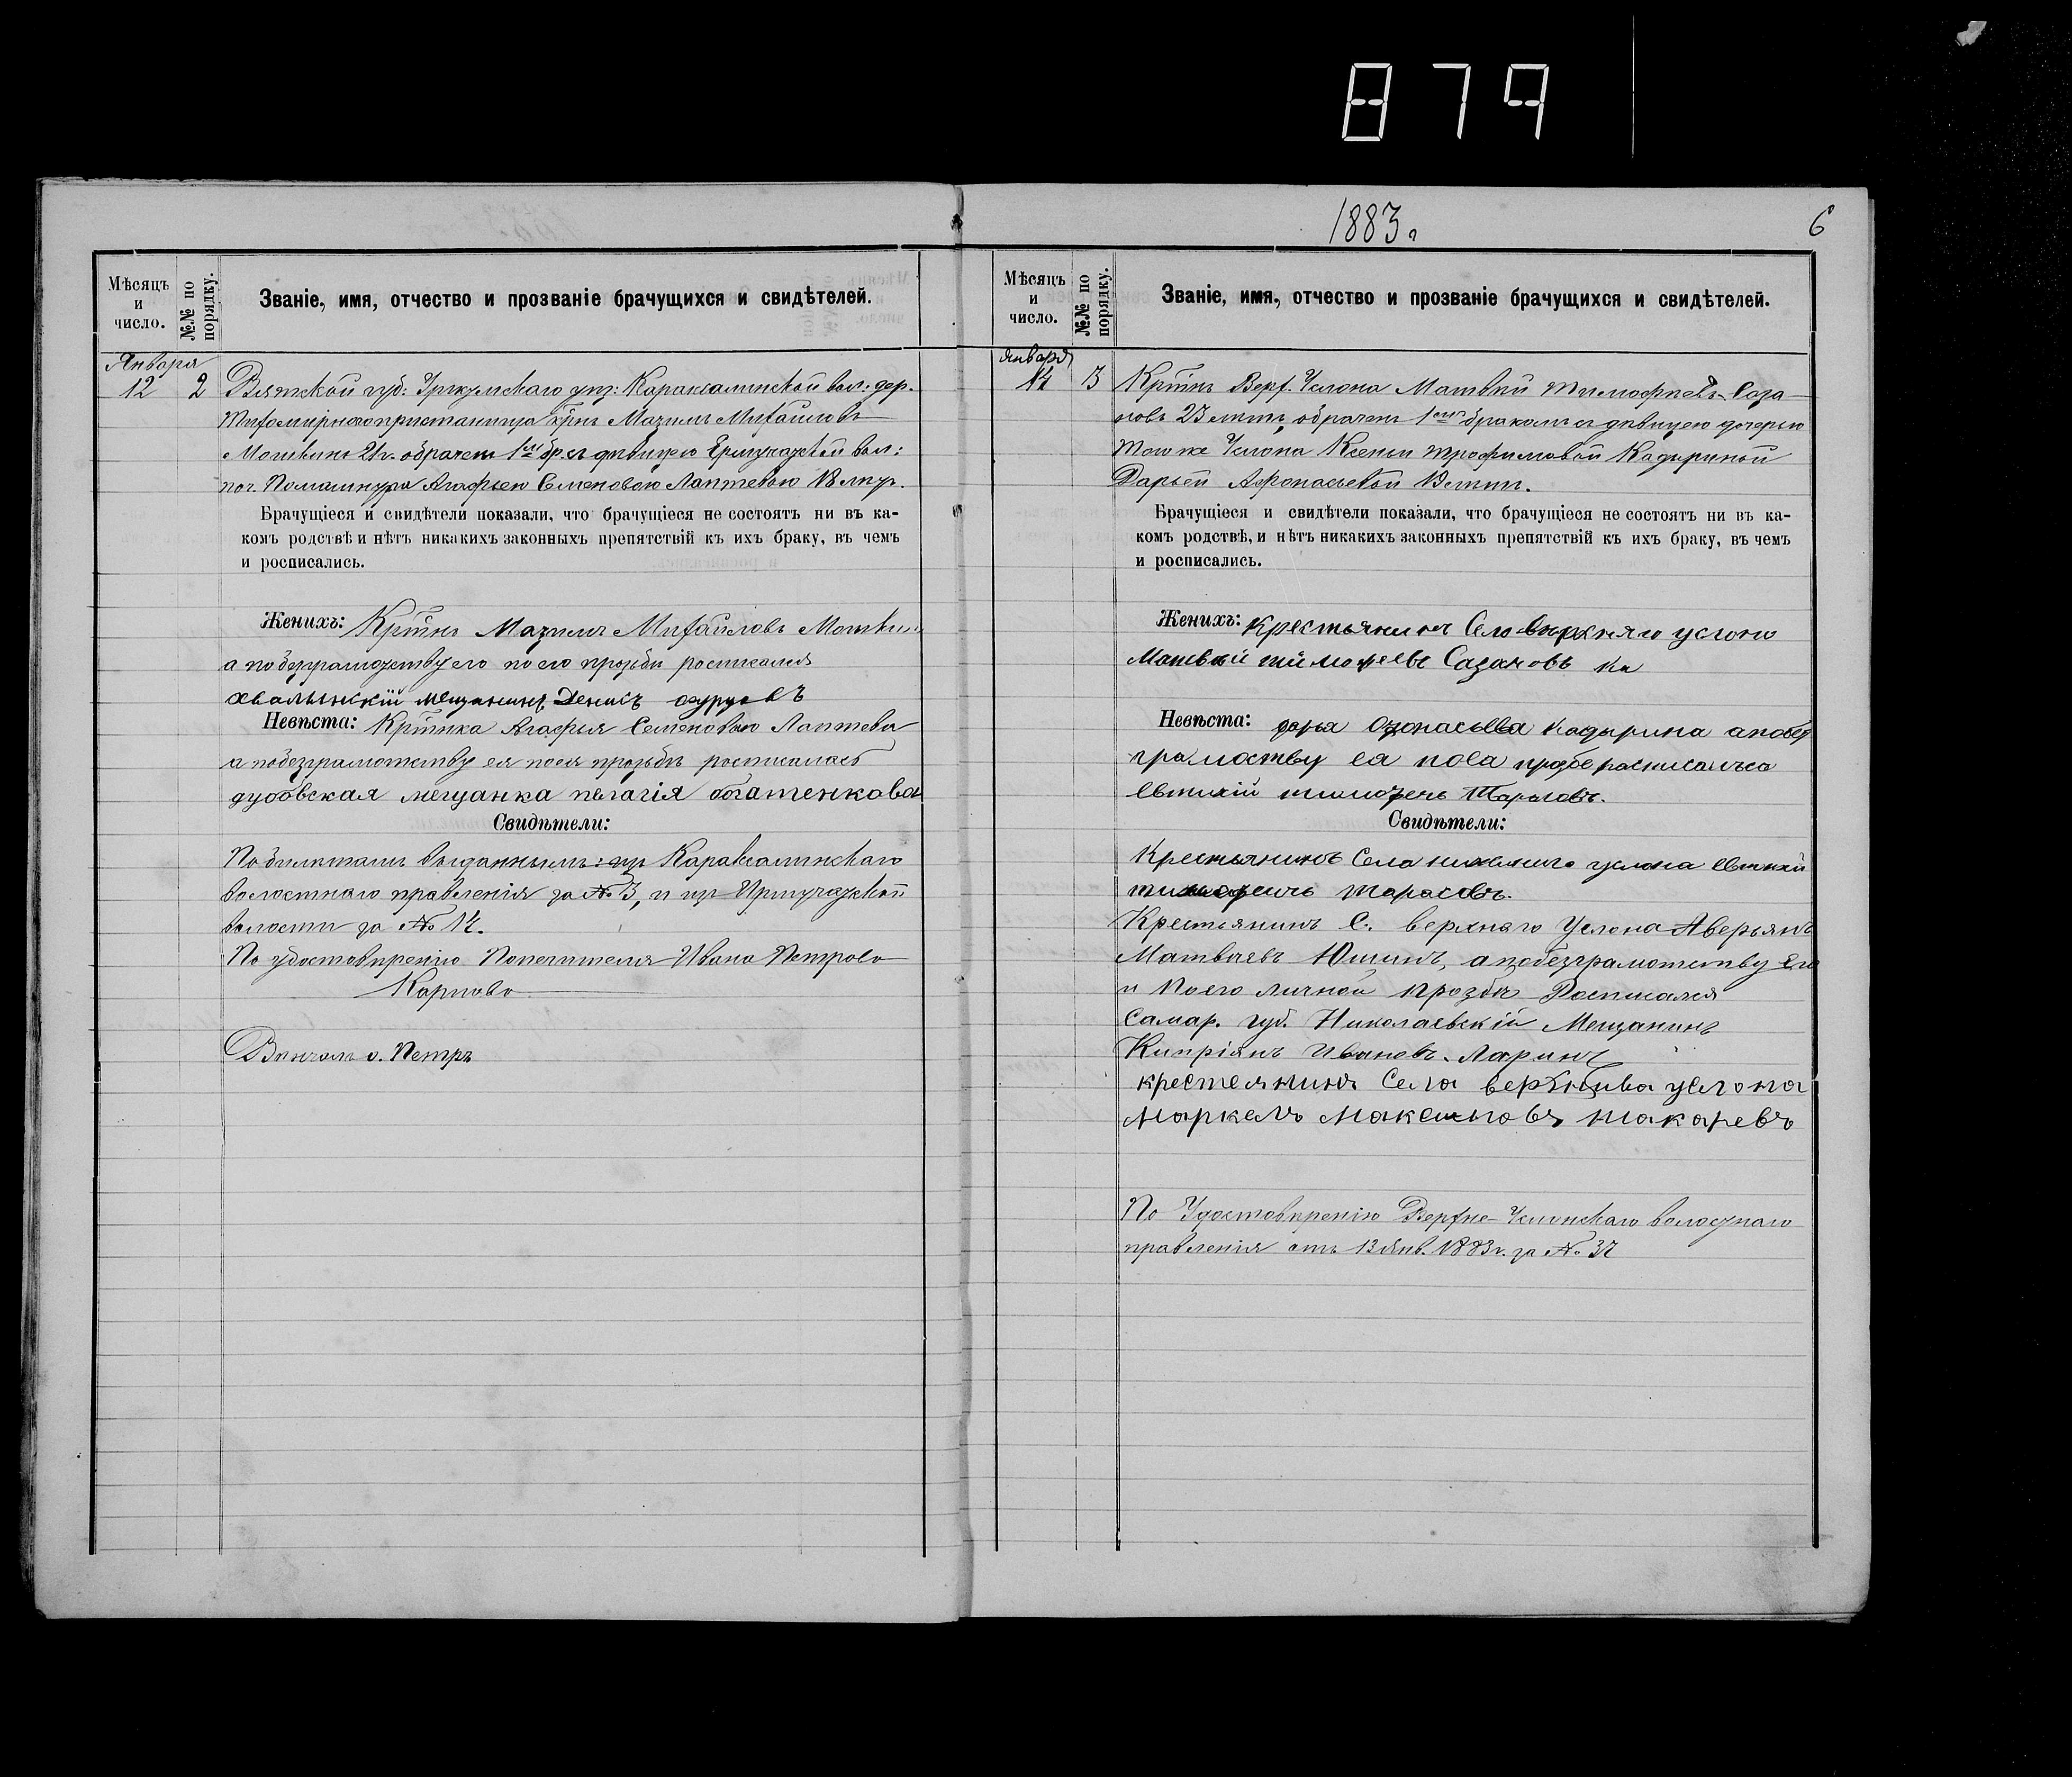 879
1883 г.
6
Мѣсяцъ и число.
№№ по порядку.
Званіе, имя, отчество и прозваніе брачущихся и свидѣтелей.
Января
12 2 Вятской губ: Уржумскаго уѣз: Караксалинской вол. дер.
Тихомірнопристанища крн Мазимъ Михайловъ
21 г. обрачен 1ым бр. съ дѣвицею вол:
поч. Помашнура Агафьею Семеновою Лаптевою 18 лѣт.
Брачущіеся и свидѣтели показали, что брачущіеся не состоятъ ни въ ка-
комъ родствѣ и нѣтъ никакихъ законныхъ препятствій къ ихъ браку, въ чемъ
и росписались.
Женихъ: Кртнъ Мазимъ Михайловъ
а по безграмотству его по его прозьби росписался
хвалынскій мещанинъ Денисъ
Невѣста: Кртнка Агафья Семеновою Лаптева
а побезграмотству ея поея прозьбѣ росписалась
дубовская мещанка пелагія богатенкова
Свидѣтели:
По билѣтамъ выданнымъ: из Караксалинскаго
волостнаго правленія за № 3, и из
волости за № 14.
По удостовѣренію Попечителя Ивана Петрова
Карпова
Вѣнчалъ о. Петръ
Мѣсяцъ и число.
№№ по порядку.
Званіе, имя, отчество и прозваніе брачущихся и свидѣтелей.
Января
14 3 Кртнъ Верх. Услона Матвѣй Тимофѣевъ Саза-
новъ 23 лѣтъ, обрачен 1ымъ бракомъ съ дѣвицею дочерью
того же Услона Ксеньи Трофимовой Кадыриной
Дарьей Афонасьевой лѣтъ.
Брачущіеся и свидѣтели показали, что брачущіеся не состоятъ ни въ ка-
комъ родствѣ, и нѣтъ никакихъ законныхъ препятствій къ ихъ браку, въ чемъ
и росписались.
Женихъ: крестьянинъ Село верхняго услоно
Матвѣй тимофеевъ Сазановъ
Невѣста: дарья Кадырина апобез
грамоству ея поея
евтихій Тарасовъ.
Свидѣтели:
Крестьянинъ Села нижниго услона евтихій
Тарасовъ.
Крестьянинъ С. верхнаго Услона Аверьянъ
Матвѣевъ Юшинъ, апобезграмотству Его
и поего личной прозбѣ Росписался
Самар. губ. Николаевскій Мещанинъ
Кипріянъ Ивановъ Ларинъ
крестеянинъ Села верхнива услона
Маркелъ макаревъ
По Удостовѣренію Верхне-Услонскаго волоснаго
правленія отъ 13 Янв. 1883 г. за № 37